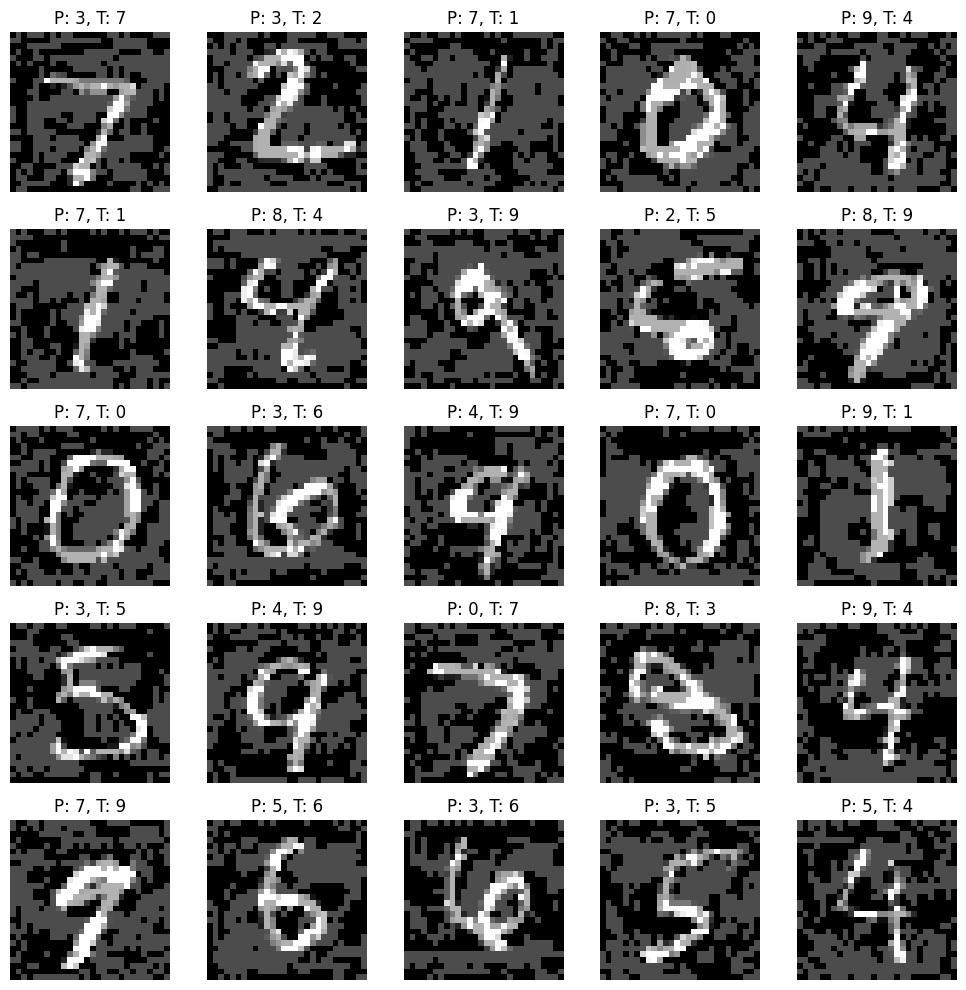 P: 3, T: 7 P: 3, T: 2 P: 7, T: 1 P: 7, T: 0 P: 9, T: 4
7 2 1 0 4
P: 7, T: 1 P: 8, T: 4 P: 3, T: 9 P: 2, T: 5 P: 8, T: 9
1 4 9 5 9
P: 7, T: 0 P: 3, T: 6 P: 4, T: 9 P: 7, T: 0 P: 9, T: 1
0 6 9 0 1
P: 3, T: 5 P: 4, T: 9 P: 0, T: 7 P: 8, T: 3 P: 9, T: 4
5 9 7 3 4
P: 7, T: 9 P: 5, T: 6 P: 3, T: 6 P: 3, T: 5 P: 5, T: 4
9 6 6 5 4